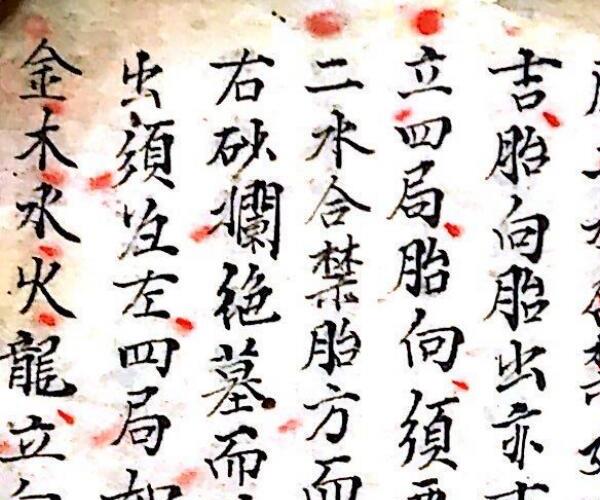 吉胎向胎出亦
立四局胎向須
二水合禁胎方而
右砂爛絕墓而
出須注左四局如
金木水火龍立向